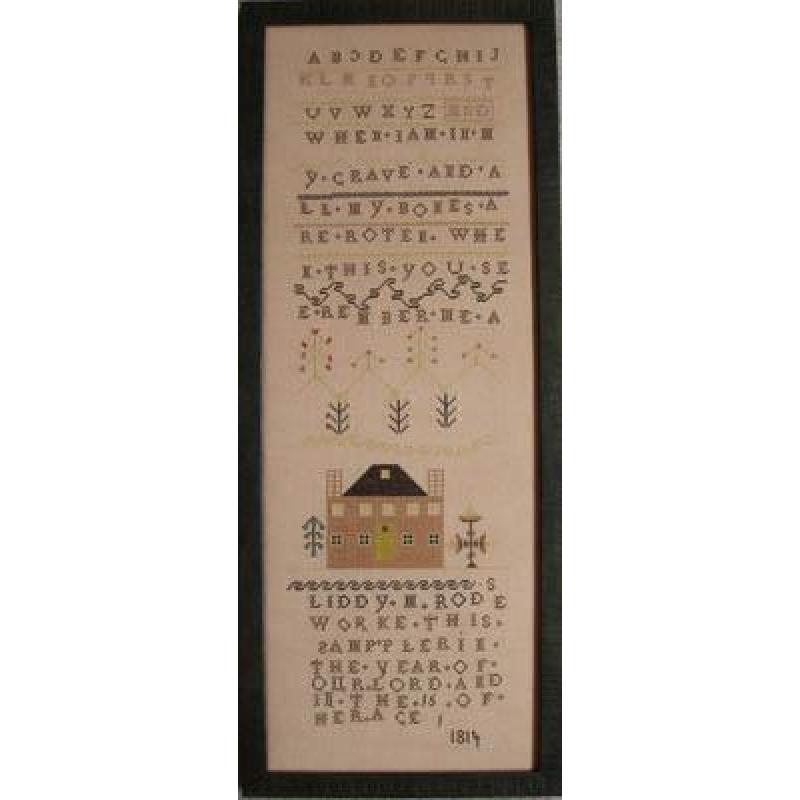 A B C D E F G H I J
K L M N O P Q R S T
U V W X Y Z AED
WHEN·IAM·IN·M
Y·GRAVE·AND·A
LL·MY·BONES·A
RE·ROTEN·WHE
N·THIS·YOU·SE
E·REMBER·ME·A
S
LIDDY·M·RODE
WORKE·THIS·
SAMPPLERIN·
THE·YEAR·OF·
OUR·LORD·AND
IN·THE·15·OF·
HER·AGE 1
1814